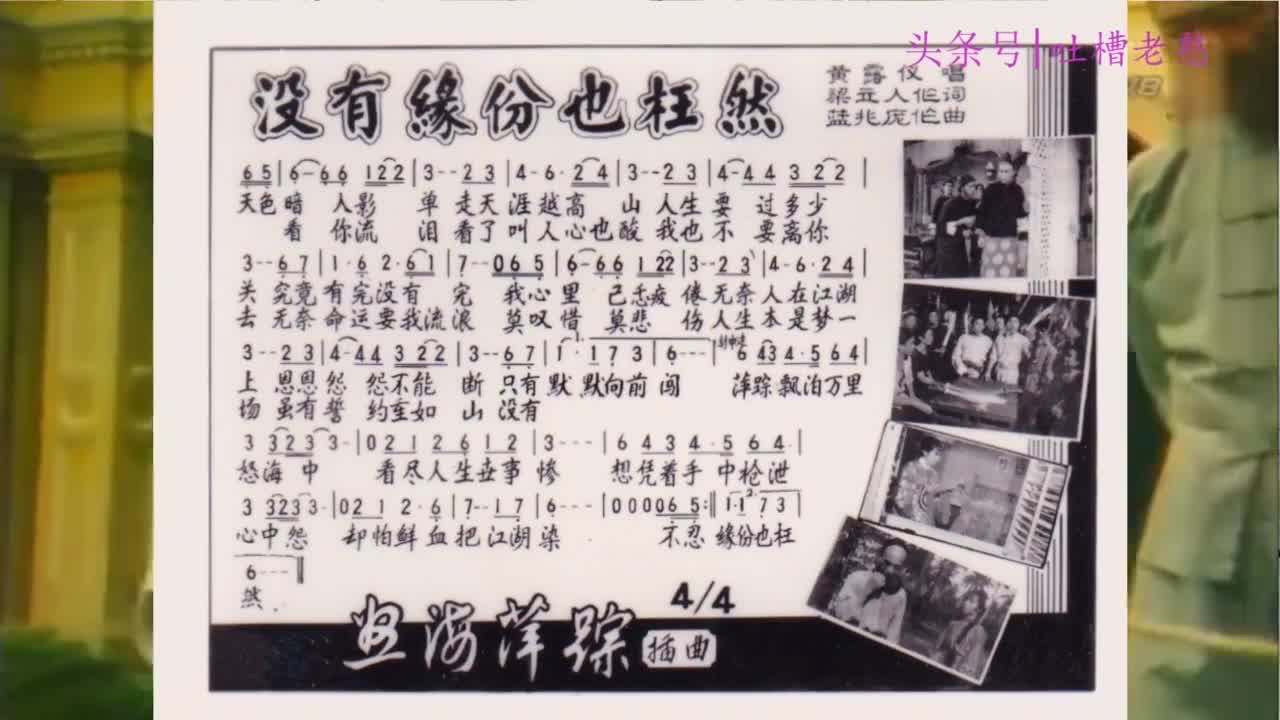 头条号|吐槽老
没有緣份也枉然
黄露仪唱
梁立人作词
蓝兆庞作曲
6 5 | 6 - 6 6 1 2 2 | 3 - - 2 3 | 4 - 6 · 2 4 | 3 - - 2 3 | 4 - 4 4 3 2 2 |
天色暗 人影 单 走天涯越高 山 人生要 过多少
看 你流 泪 看了叫人心也酸 我也不 要离你
3 - - 6 7 | 1 · 6 2 · 6 1 | 7 - - 0 6 5 | 6 - 6 6 1 2 2 | 3 - - 2 3 | 4 - 6 · 2 4 |
关 究竟有完没有 完 我心里 已志疲 倦无奈人在江湖
去 无奈命运要我流浪 莫叹惜 莫悲 伤人生本是梦一
3 - - 2 3 | 4 - 4 4 3 2 2 | 3 - - 6 7 | 1 · 1 7 3 | 6 - - - | 6 4 3 4 · 5 6 4 |
上 恩恩怨 怨不能 断 只有默 默向前 闯 萍踪飘泊万里
场 虽有誓 约重如 山 没有
3 3 2 3 3 - | 0 2 1 2 6 1 2 | 3 - - - | 6 4 3 4 · 5 6 4 |
怒海 中 看尽人生世事 惨 想凭着手 中枪泄
3 3 2 3 3 · | 0 2 1 2 · 6 | 7 - - 1 7 | 6 - - - | 0 0 0 0 0 6 5 :‖ 1 · 1 7 3 |
心中 怨 却怕鲜 血把江湖染 不忍 缘份也枉
6 - - - ‖
然
4/4
怒海萍踪 插曲